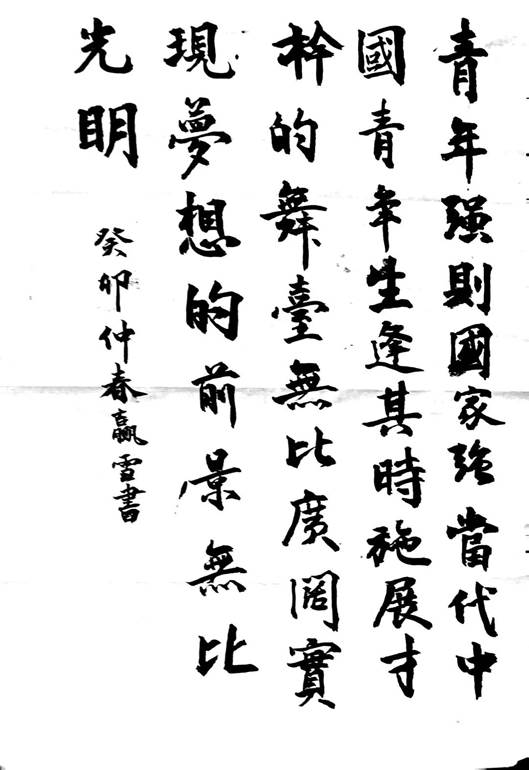 青年强則國家強當代中
國青年生逢其時施展才
幹的舞臺無比廣闊實
現夢想的前景無比
光明
癸卯仲春贏雪書